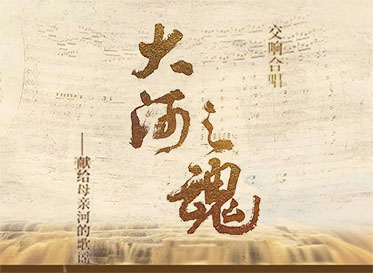 交响合唱
大河之魂
——献给母亲河的歌谣